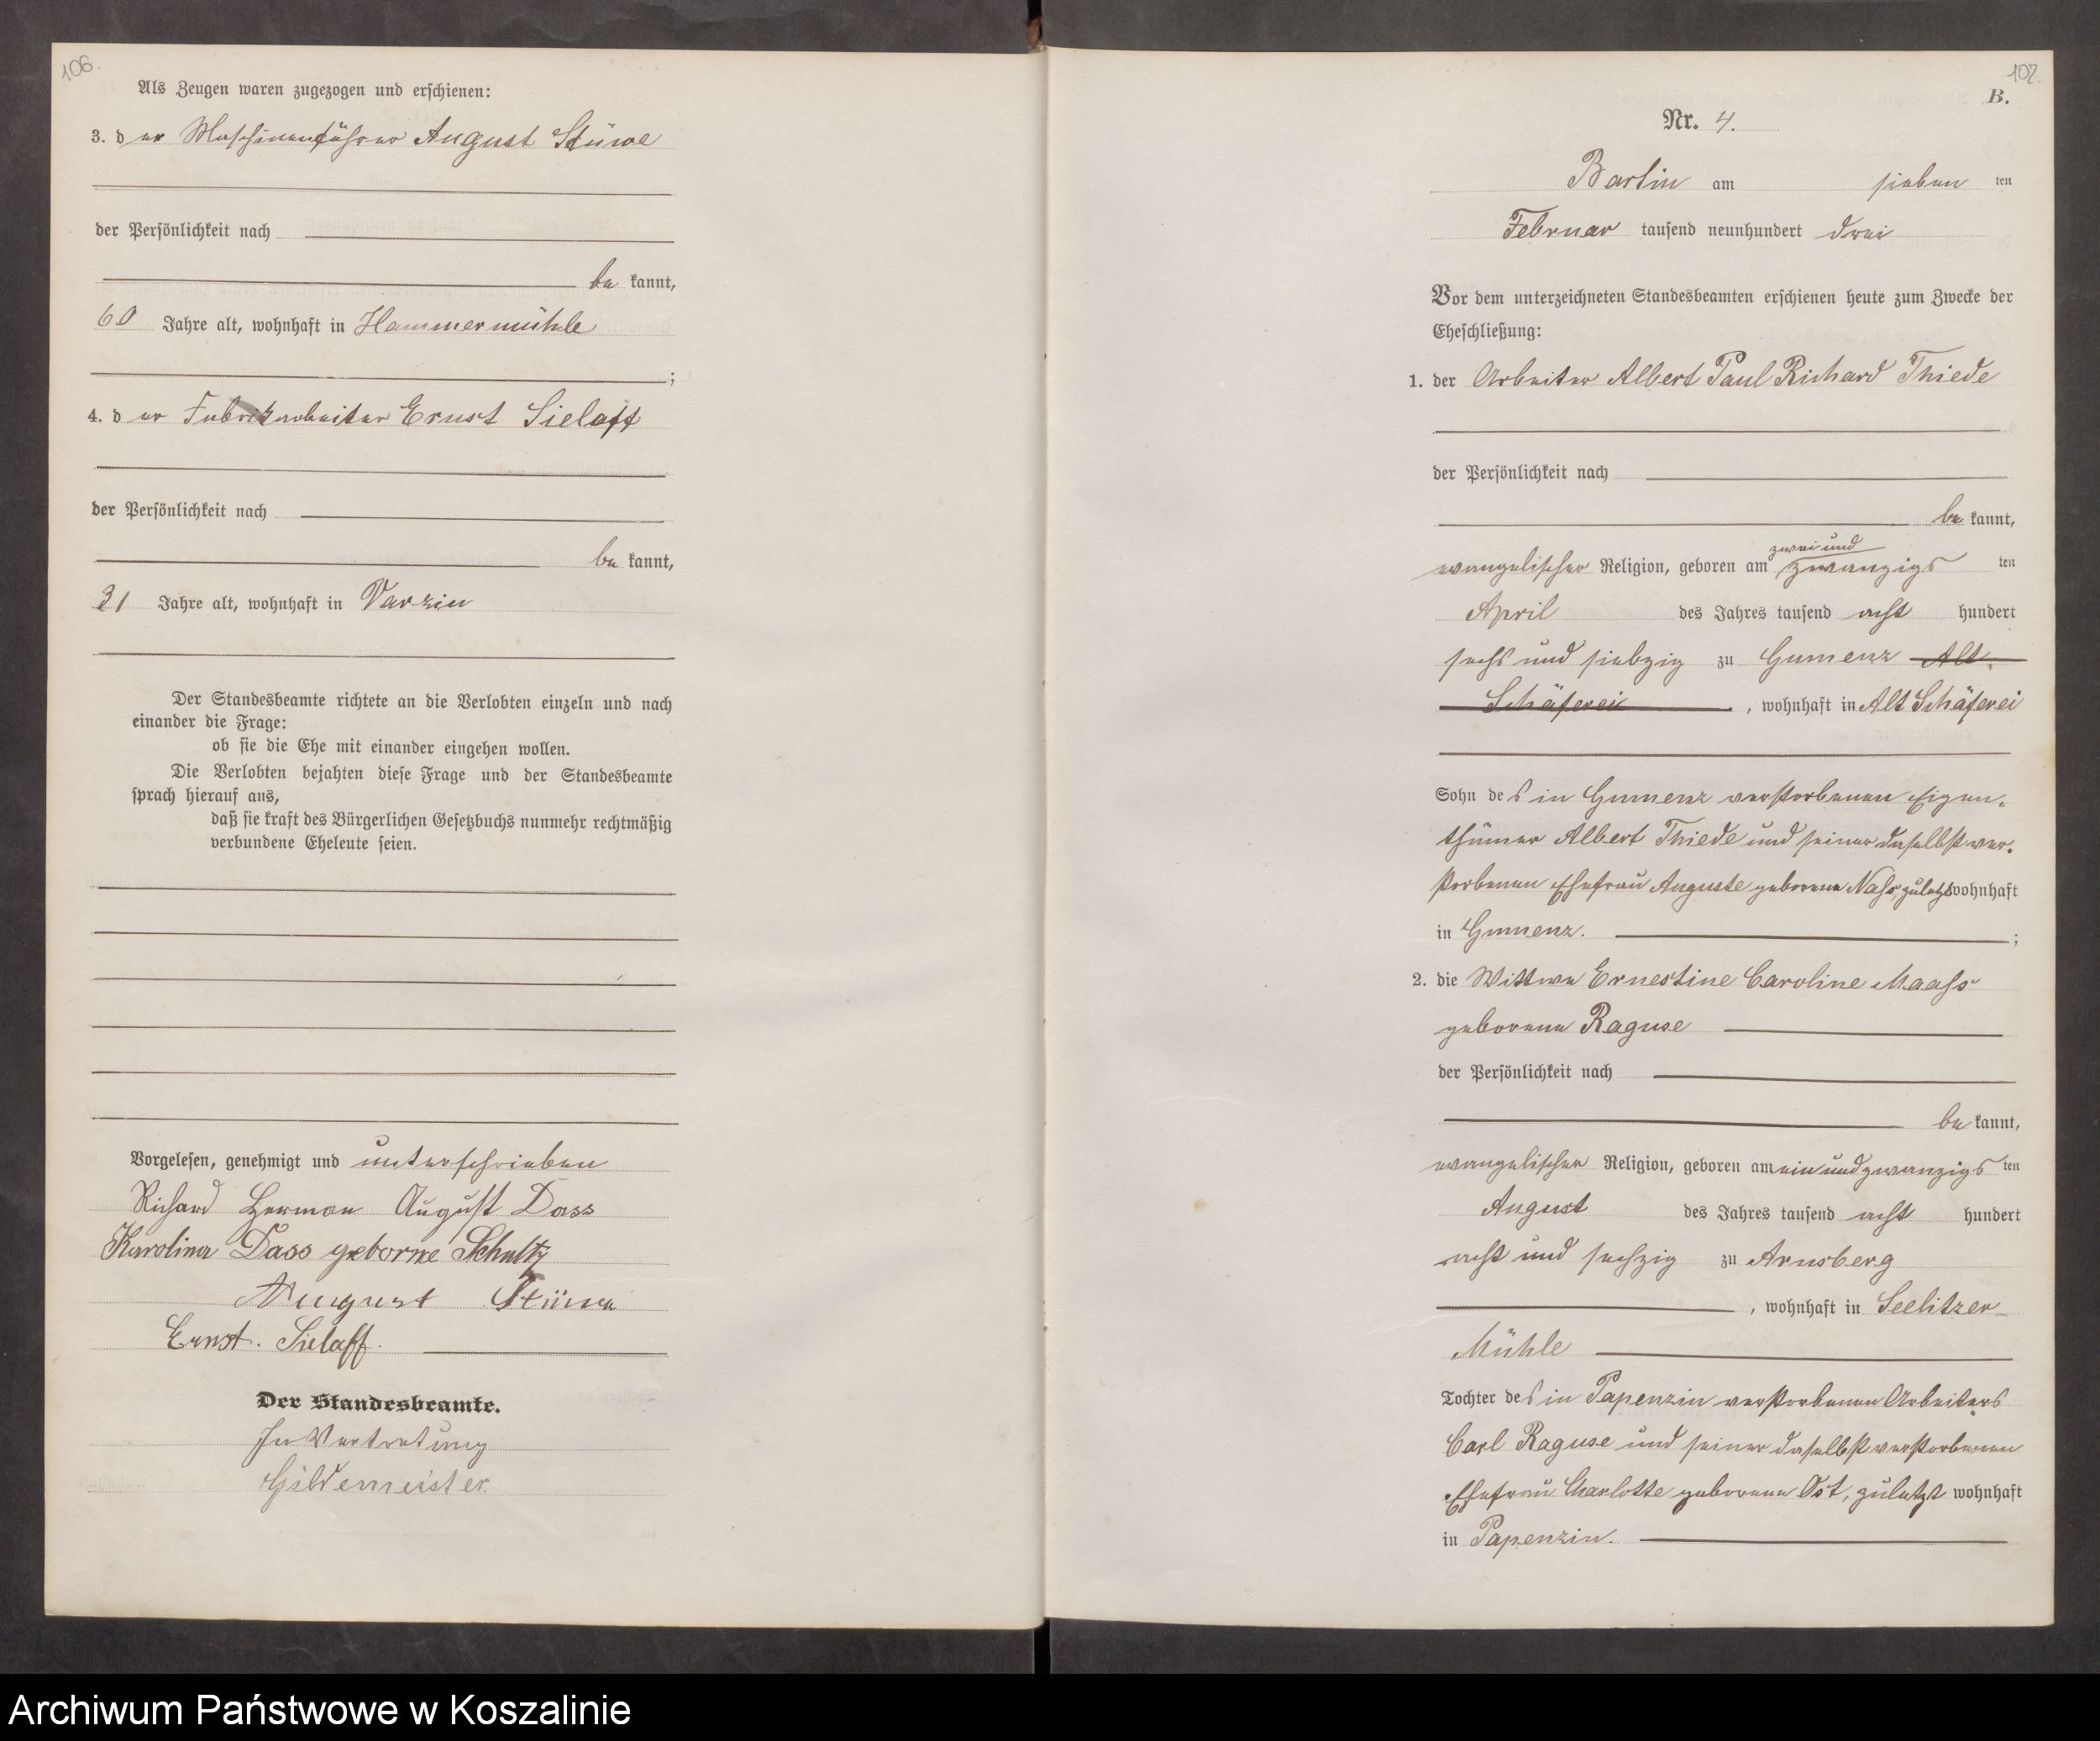 106.
Als Zeugen waren zugezogen und erschienen:
3. der Maschinenführer August Stüwe
der Persönlichkeit nach
be kannt,
60 Jahre alt, wohnhaft in Hammermühle
;
4. der Fabrikarbeiter Ernst Sielaff
der Persönlichkeit nach
be kannt,
31 Jahre alt, wohnhaft in Varzin
Der Standesbeamte richtete an die Verlobten einzeln und nach
einander die Frage:
ob sie die Ehe mit einander eingehen wollen.
Die Verlobten bejahten diese Frage und der Standesbeamte
sprach hierauf aus,
daß sie kraft des Bürgerlichen Gesetzbuchs nunmehr rechtmäßig
verbundene Eheleute seien.
Vorgelesen, genehmigt und unterschrieben
Richard Herman August Dass
Karoline Dass geborne Schultz
August Stüwe
Ernst. Sielaff.
Der Standesbeamte.
In Vertretung
Gildemeister
107.
B.
Nr. 4.
Bartin am sieben ten
Februar tausend neunhundert drei
Vor dem unterzeichneten Standesbeamten erschienen heute zum Zwecke der
Eheschließung:
1. der Arbeiter Albert Paul Richard Thiede
der Persönlichkeit nach
be kannt,
zwei und
evangelischer Religion, geboren am zwanzigs ten
April des Jahres tausend acht hundert
sechs und siebzig zu Gumenz Alt
Schäferei, wohnhaft in Alt Schäferei
Sohn des in Gumenz verstorbenen Eigen-
thümer Albert Thiede und seiner daselbst ver-
storbenen Ehefrau Auguste geborene Nass, zuletzt wohnhaft
in Gumenz. ;
2. die Wittwe Ernestine Caroline Maass
geborene Raguse
der Persönlichkeit nach
be kannt,
evangelischer Religion, geboren am ein und zwanzigs ten
August des Jahres tausend acht hundert
acht und sechzig zu Arnsberg
, wohnhaft in Seelitzer-
Mühle
Tochter des in Papenzin verstorbenen Arbeiters
Carl Raguse und seiner daselbst verstorbenen
Ehefrau Charlotte geborene Ost, zuletzt wohnhaft
in Papenzin.
Archiwum Państwowe w Koszalinie